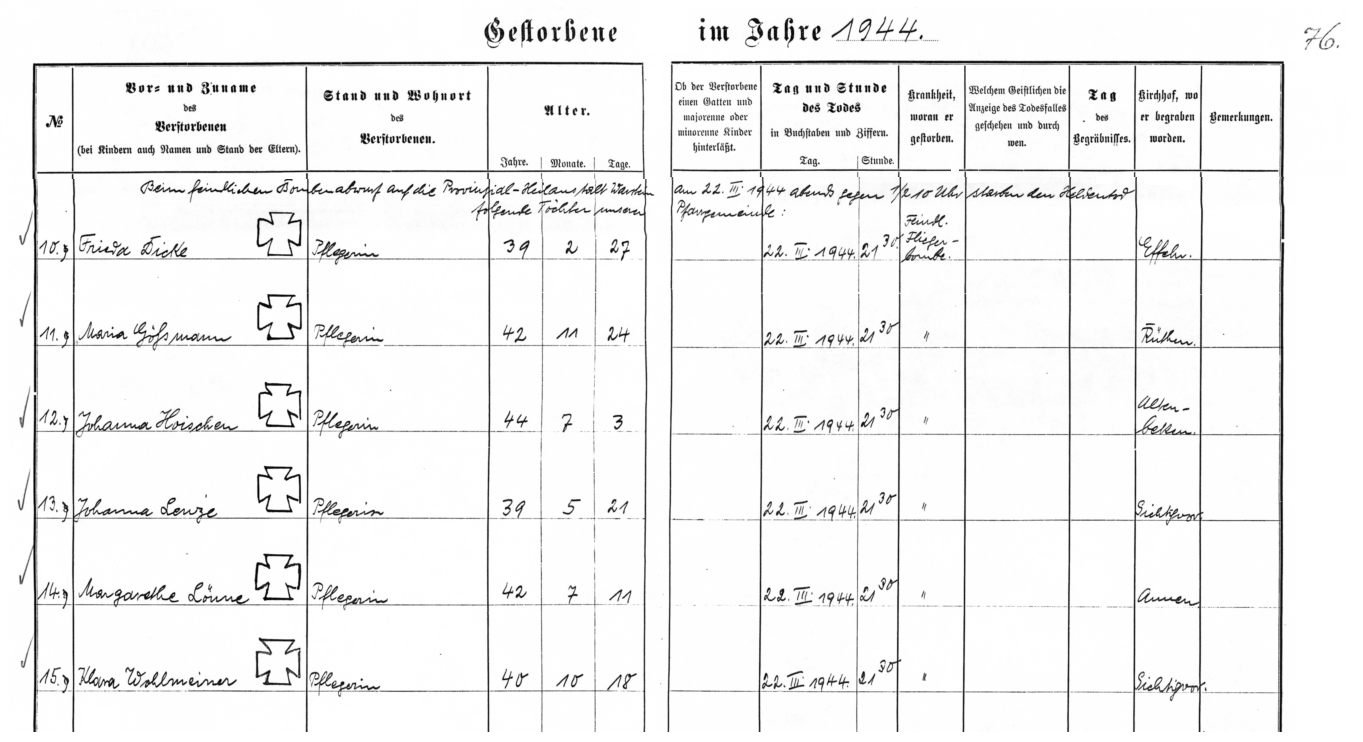 Gestorbene im Jahre 1944.
76.
№
Vor- und Zuname
des
Verstorbenen
(bei Kindern auch Namen und Stand der Eltern).
Stand und Wohnort
des
Verstorbenen.
Alter.
Jahre. Monate. Tage.
Ob der Verstorbene
einen Gatten und
majorenne oder
minorenne Kinder
hinterläßt.
Tag und Stunde
des Todes
in Buchstaben und Ziffern.
Tag. Stunde.
Krankheit,
woran er
gestorben.
Welchem Geistlichen die
Anzeige des Todesfalles
geschehen und durch
wen.
Tag
des
Begräbnisses.
Kirchhof, wo
er begraben
worden.
Bemerkungen.
Beim feindlichen Bombenabwurf auf die Provinzial-Heilanstalt Warstein am 22. III. 1944 abends gegen 1/2 10 Uhr starben den Heldentod
folgende Töchter unserer Pfarrgemeinde:
10. Frieda Dicke Pflegerin 39 2 27 22. III. 1944. 21 30 Feindl. Flieger-bombe. Effeln.
11. Maria Gößmann Pflegerin 42 11 24 22. III. 1944. 21 30 " Rüthen.
12. Johanna Hoischen Pflegerin 44 7 3 22. III. 1944. 21 30 " Alten-beken.
13. Johanna Lenze Pflegerin 39 5 21 22. III. 1944. 21 30 " Sichtigvor.
14. Margarethe Lönne Pflegerin 42 7 11 22. III. 1944. 21 30 " Annen.
15. Klara Wohlmeiner Pflegerin 40 10 18 22. III. 1944. 21 30 " Sichtigvor.